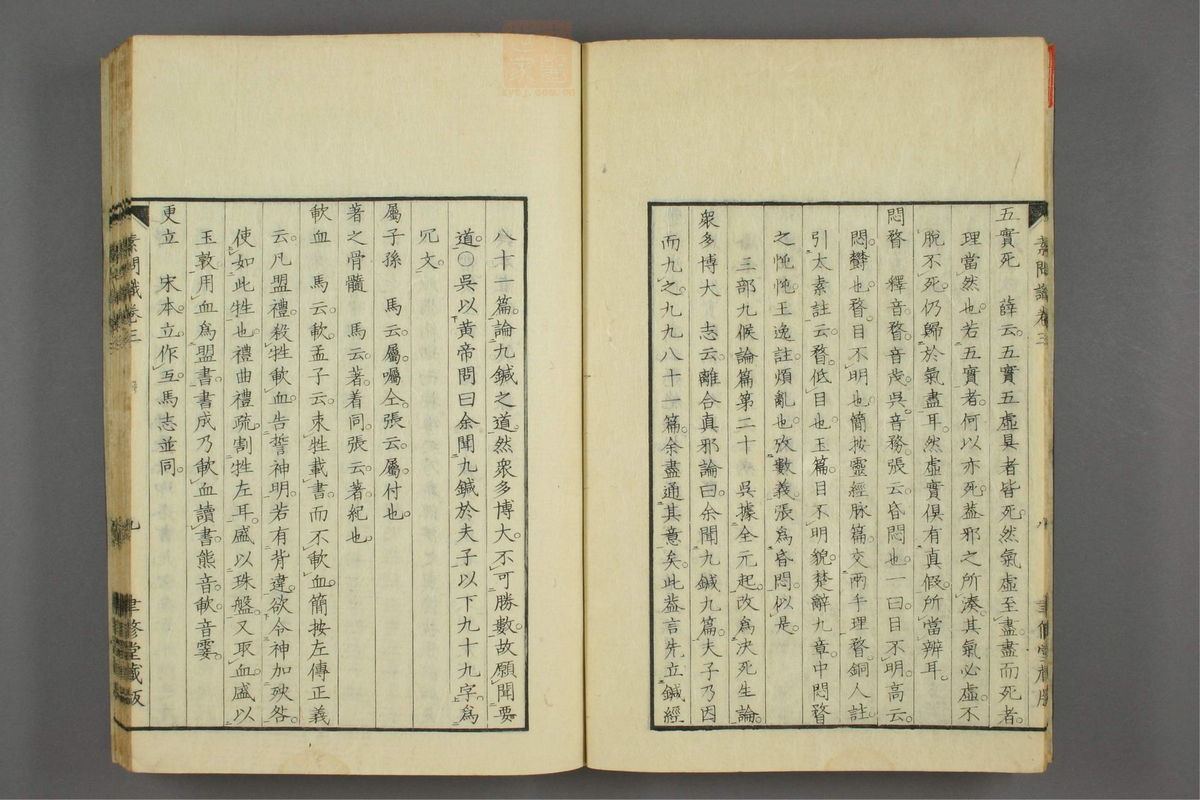 五實死　薛云。五實五虛具者皆死。然氣虛至盡。盡而死者
理當然也。若五實者。何以亦死。蓋邪之所湊。其氣必虛。不
脫不死。仍歸於氣盡耳。然虛實俱有真假。所當辨耳。
悶瞀　釋音。瞀音茂。吳音務。張云。昏悶也。一曰。目不明。高云。
悶。鬱也。瞀。目不明也。簡按靈經脉篇。交兩手理瞀。銅人註
引太素註云。瞀。低目也。玉篇。目不明貌。楚辭九章。中悶瞀
之忳忳。王逸註。煩亂也。攷數義。張爲昏悶。似是。
三部九候論篇第二十　吳據全元起。改爲決死生論。
衆多博大　志云。離合真邪論曰。余聞九鍼九篇。夫子乃因
而九之。九九八十一篇。余盡通其意矣。此蓋言先立鍼經
素問識卷三　八　聿修堂
八十一篇。論九鍼之道。然衆多博大。不可勝數。故願聞要
道。〇吳以黃帝問曰余聞九鍼於夫子以下九十九字。爲
冗文。
屬子孫　馬云。屬。囑仝。張云。屬。付也。
著之骨髓　馬云。著。着同。張云。著。紀也。
歃血　馬云。歃。孟子云。束牲載書。而不歃血。簡按左傳正義
云。凡盟禮。殺牲歃血。告誓神明。若有背違。欲令神加殃咎。
使如此牲也。禮曲禮疏。割牲左耳。盛以珠盤。又取血。盛以
玉敦。用血爲盟書。書成乃歃血讀書。熊音。歃音霎。
更立　宋本。立作互。馬志並同。
素問識卷三　九　聿修堂藏版